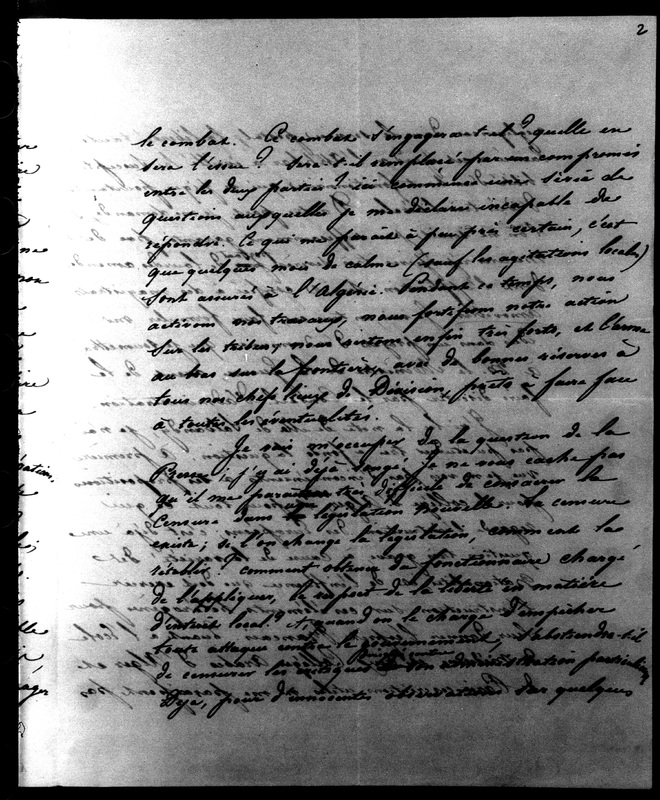 2
le combat. Ce combat s'engagera-t-il ? quelle en
sera l'issue ? Sera-t-il remplacé par un compromis
entre les deux parties ? ici commence une série de
questions auxquelles je me déclare incapable de
répondre. Ce que me paraît à peu près certain, c'est
que quelques mois de calme (sauf les agitations locales)
sont assurés à l'Algérie. Pendant ce temps, nous
activons nos travaux, nous fortifions notre action
sur les tribus, nous serons enfin très forts, et l'arme
au bras sur la frontière, avec de bonnes réserves à
tous nos chefs lieux de Division, prêts à faire face
à toutes les éventualités.
Je vais m'occuper de la question de la
Presse ; j'y ai déjà songé. Je ne vous cache pas
qu'il me paraît très difficile de consacrer la
Censure dans la législation nouvelle. La censure
existe ; si l'on change la législation, comment la
rétablir ? comment obtenir du fonctionnaire chargé
de l'appliquer, le respect de la liberté en matière
d'intérêt local ? Et quand on le charge d'empêcher
toute attaque contre le gouvernement, s'abstiendra-t-il
de censurer les critiques administration particulière
Déjà, pour d'innocentes observations sur quelques